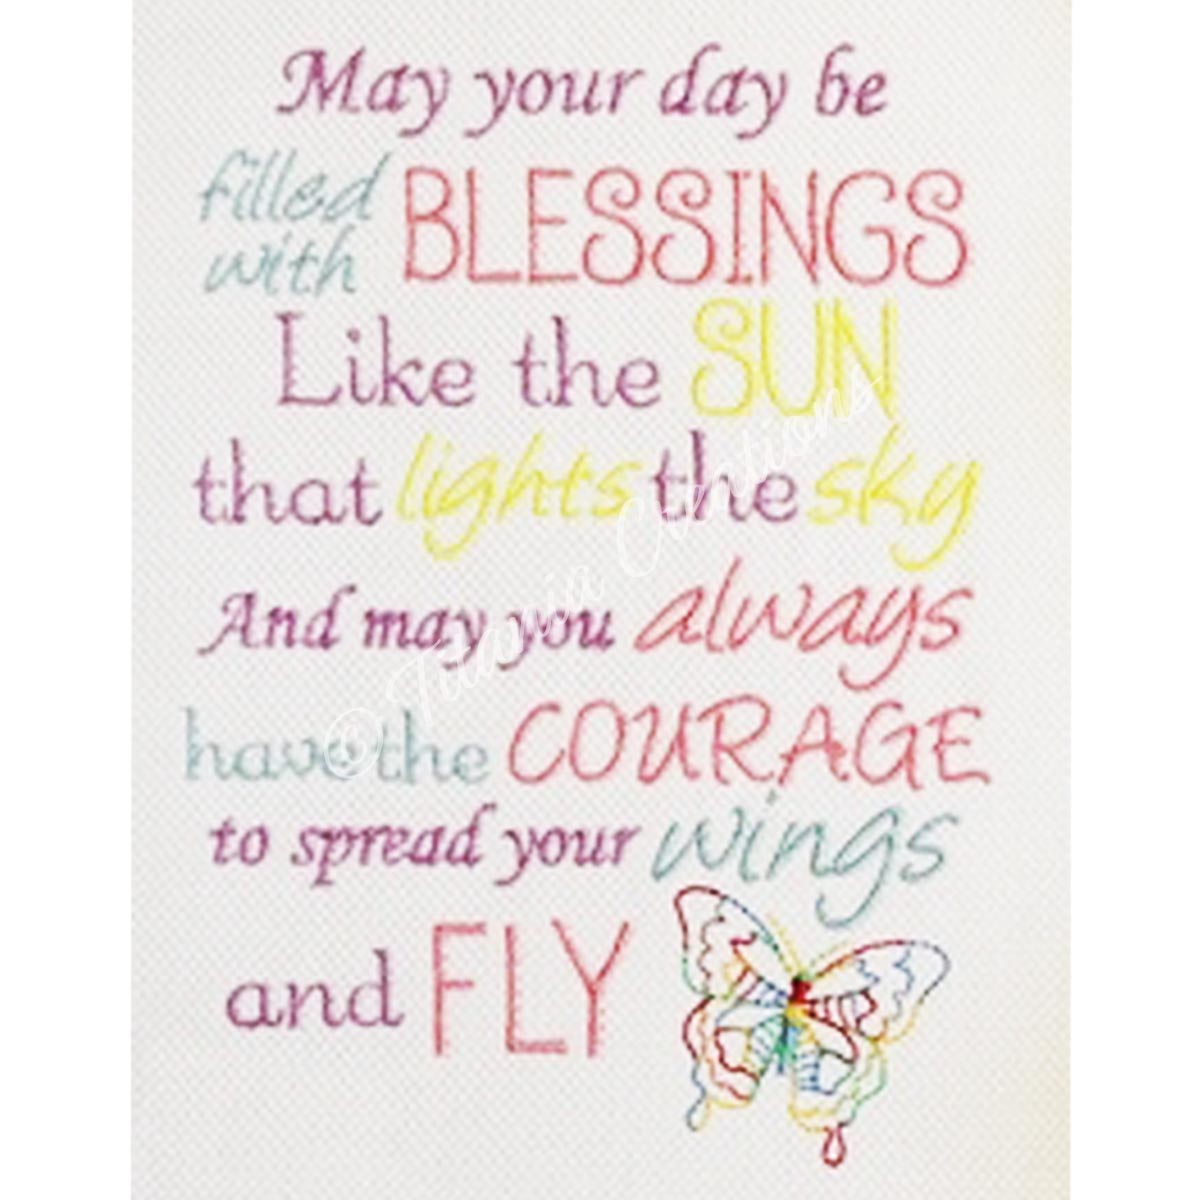 May your day be
filled
with BLESSINGS
Like the SUN
that lights the sky
And may you always
have the COURAGE
to spread your wings
and FLY
© Titania Creations